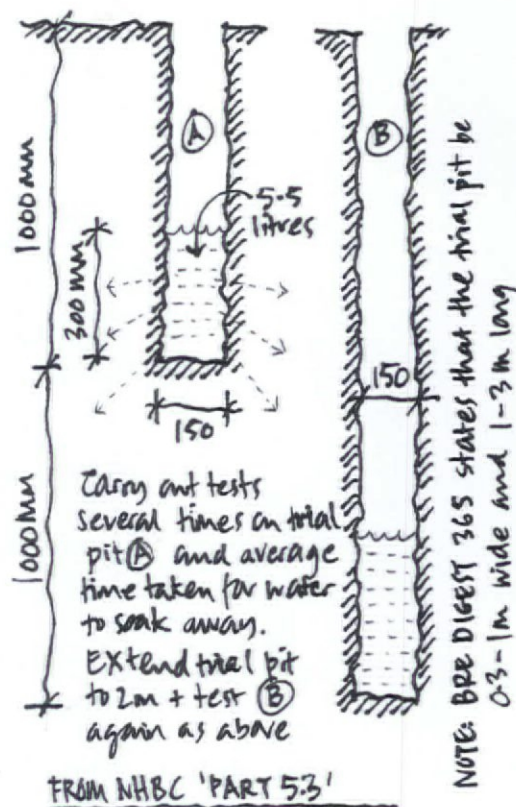 1000mm
300mm
A
5.5
litres
150
B
150
1000mm
Carry out tests
several times on trial
pit A and average
time taken for water
to soak away.
Extend trial pit
to 2m + test B
again as above
FROM NHBC 'PART 5.3'
NOTE: BRE DIGEST 365 states that the trial pit be
0.3-1m wide and 1-3m long